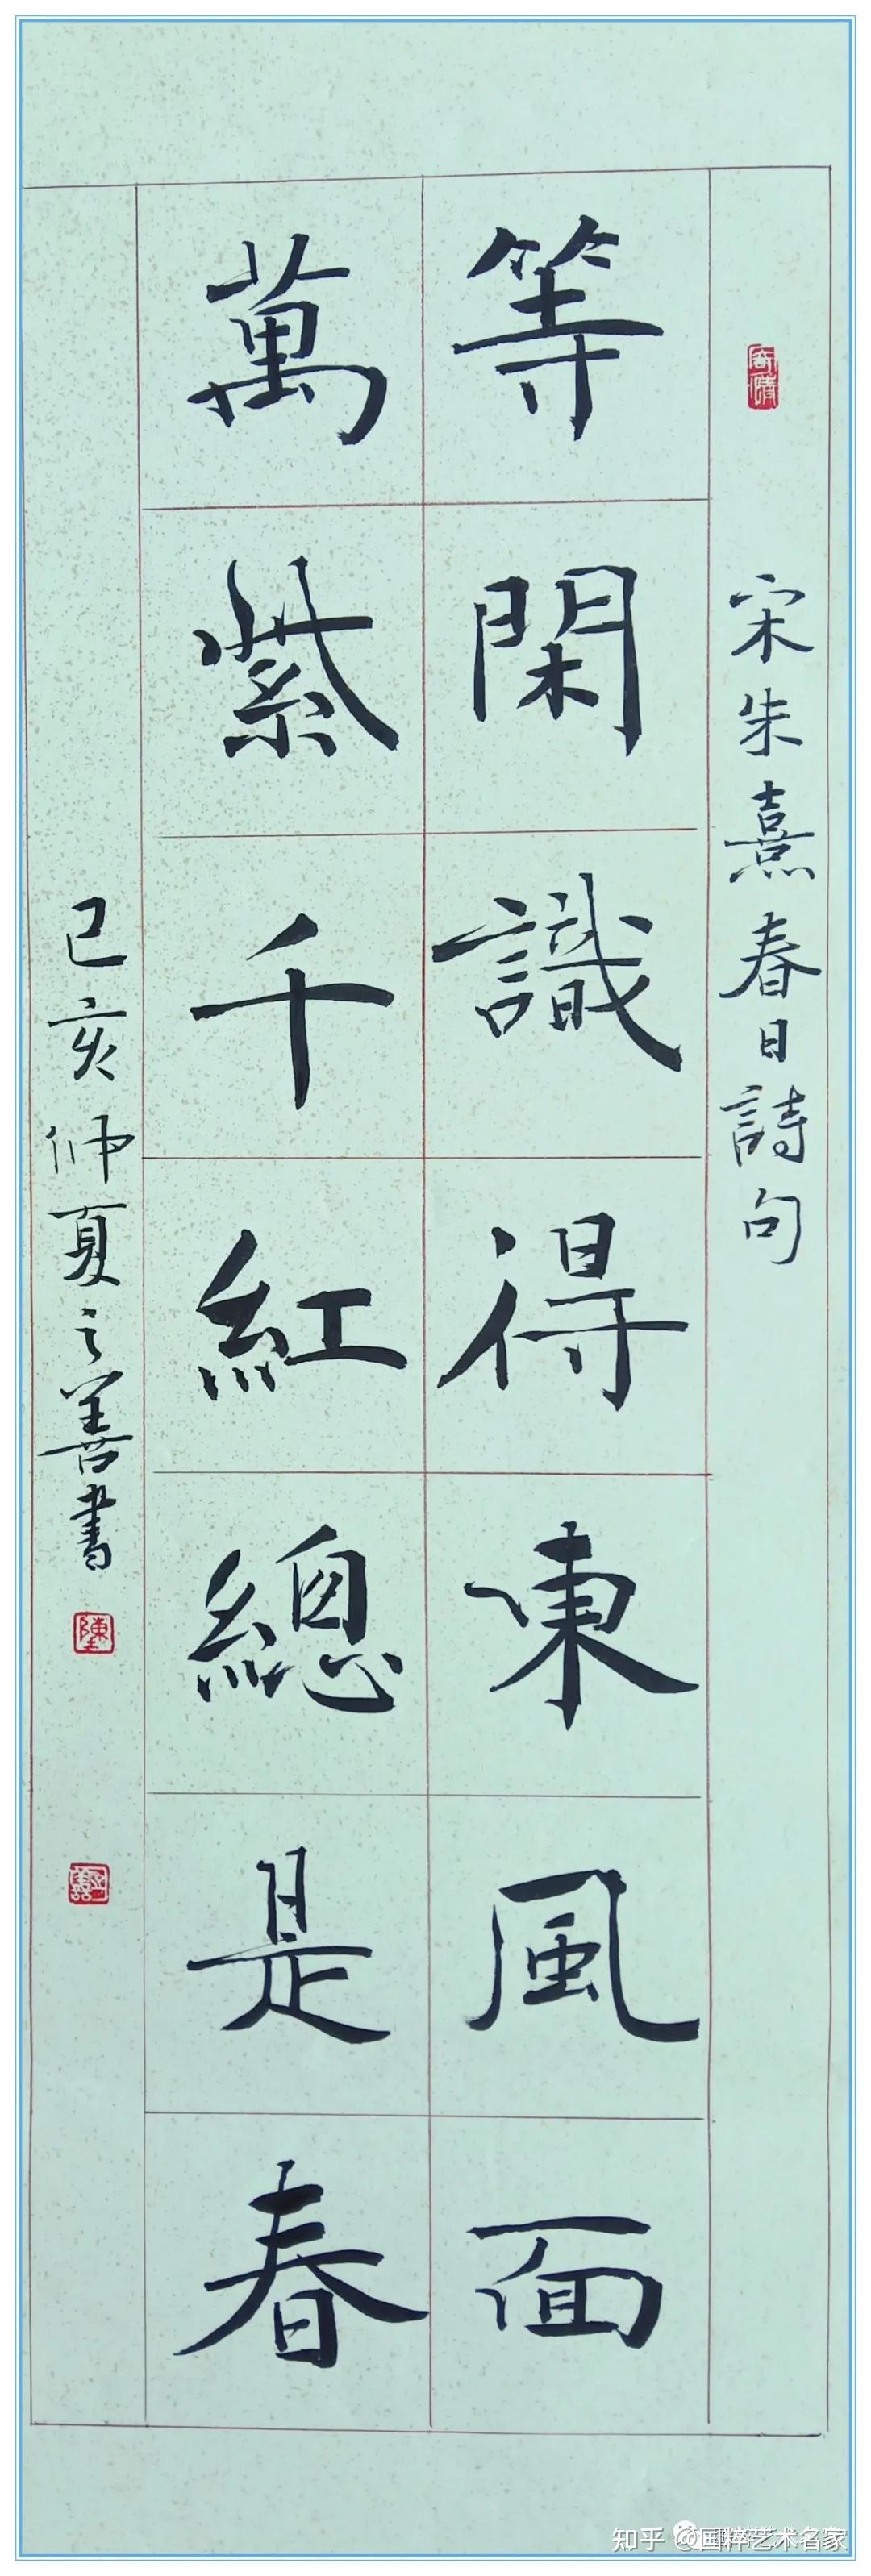 宋朱熹春日詩句
等閑識得東風面
萬紫千紅總是春
己亥仲夏之善書
陳
知乎 @国粹艺术名家